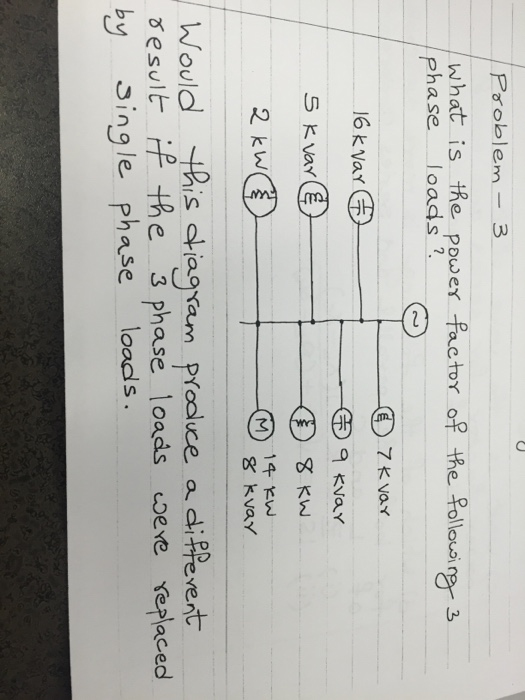 Problem - 3
What is the power factor of the following 3
phase loads?
~
16 kvar
7 kvar
9 kvar
5 kvar
8 kW
2 kW
M
14 kW
8 kvar
Would this diagram produce a different
result if the 3 phase loads were replaced
by single phase loads.